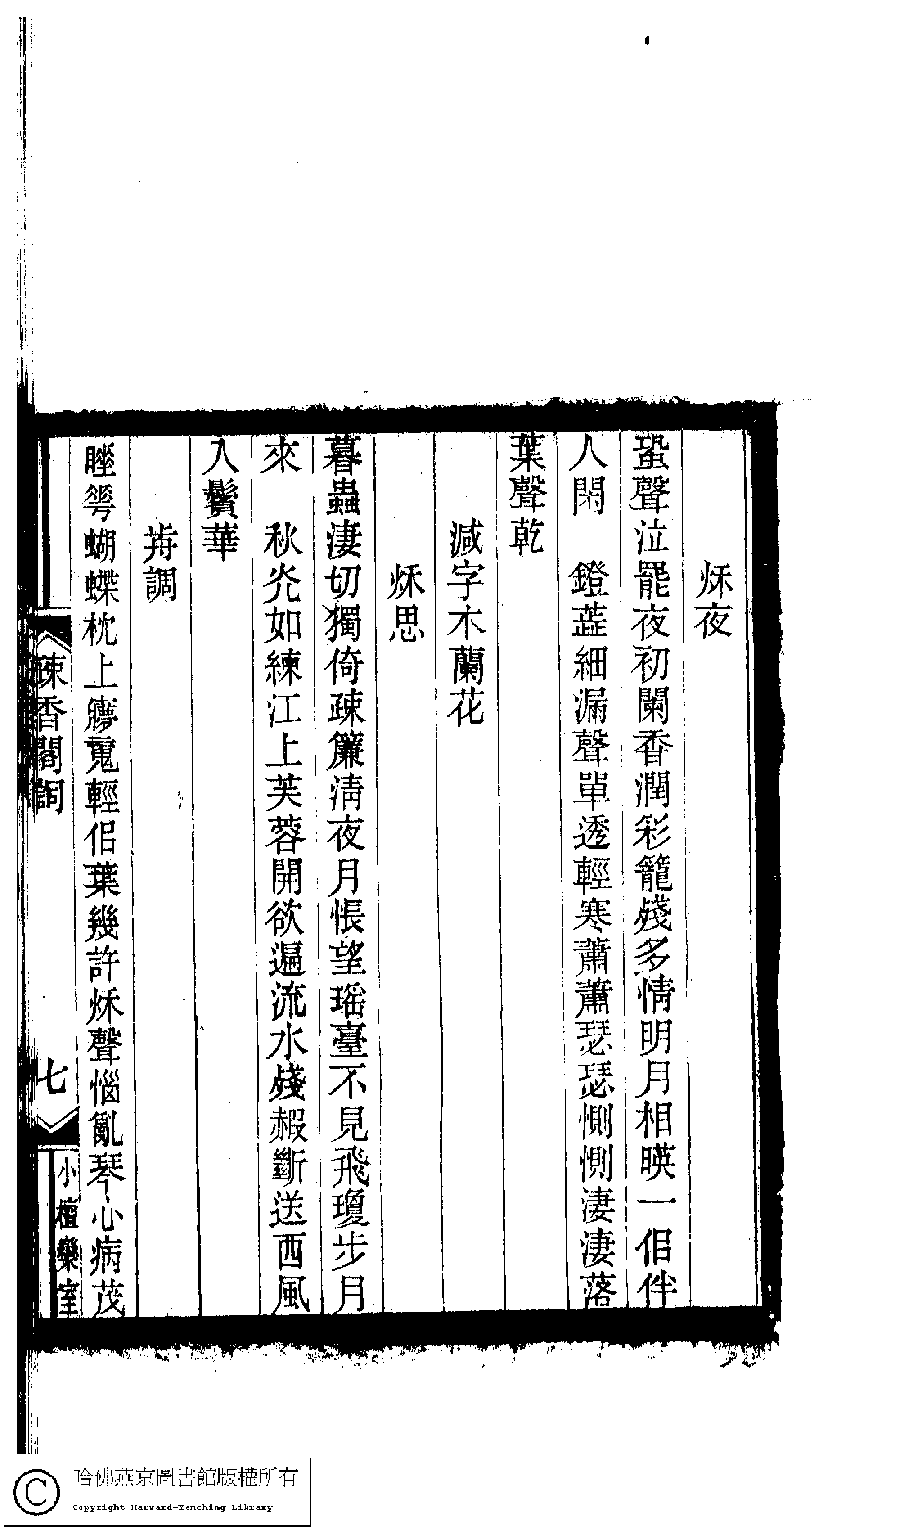 秌夜
蛩聲泣罷夜初闌香潤彩籠殘多情明月相暎一佀伴
人閑　鐙蕋細漏聲單透輕寒蕭蕭瑟瑟惻惻淒淒落
葉聲乾
減字木蘭花
秌思
暮蟲淒切獨倚疎簾淸夜月悵望瑶臺不見飛瓊步月
來　秋灮如練江上芙蓉開欲遍流水殘赮斷送西風
入鬢華
歬調
睡箉蝴蝶枕上㝱䰟輕佀葉幾許秌聲惱亂琴心病茂
疎香閣詞
七
小檀欒室
哈佛燕京圖書館版權所有
Copyright Harvard-Yenching Library